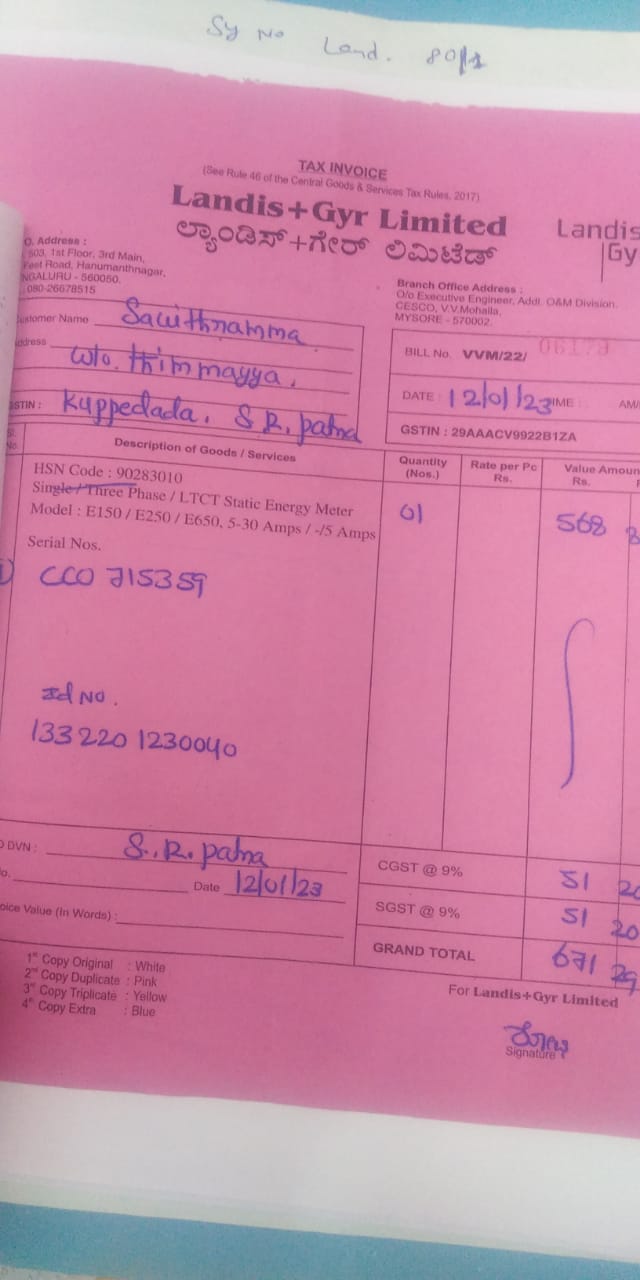 Sy No Land. 80/1
TAX INVOICE
(See Rule 46 of the Central Goods & Services Tax Rules, 2017)
Landis+Gyr Limited
ಲ್ಯಾಂಡಿಸ್+ಗೇರ್ ಲಿಮಿಟೆಡ್
Landis
Gy
O. Address :
503, 1st Floor, 3rd Main,
Feet Road, Hanumanthnagar,
NGALURU - 560050.
080-26678515
Branch Office Address :
O/o Executive Engineer, Addl. O&M Division.
CESCO, V.V.Mohalla,
MYSORE - 570002.
ustomer Name Savithramma
ddress W/o. Thimmayya,
GSTIN : Kuppedada, S R. patna
BILL No. VVM/22/ 06179
DATE : 12/01/23 IME : AM/
GSTIN : 29AAACV9922B1ZA
Sl. No. Description of Goods / Services Quantity (Nos.) Rate per Pc Rs. Value Amoun Rs.
HSN Code : 90283010
Single / Three Phase / LTCT Static Energy Meter
Model : E150 / E250 / E650, 5-30 Amps / -/5 Amps
01 568
Serial Nos.
CCO 715359
Id No.
133 220 1230040
DVN : S.R. patna
o. Date 12/01/23
oice Value (In Words) :
CGST @ 9% 51 20
SGST @ 9% 51 20
GRAND TOTAL 671 29
1st Copy Original : White
2nd Copy Duplicate : Pink
3rd Copy Triplicate : Yellow
4th Copy Extra : Blue
For Landis+Gyr Limited
Signature